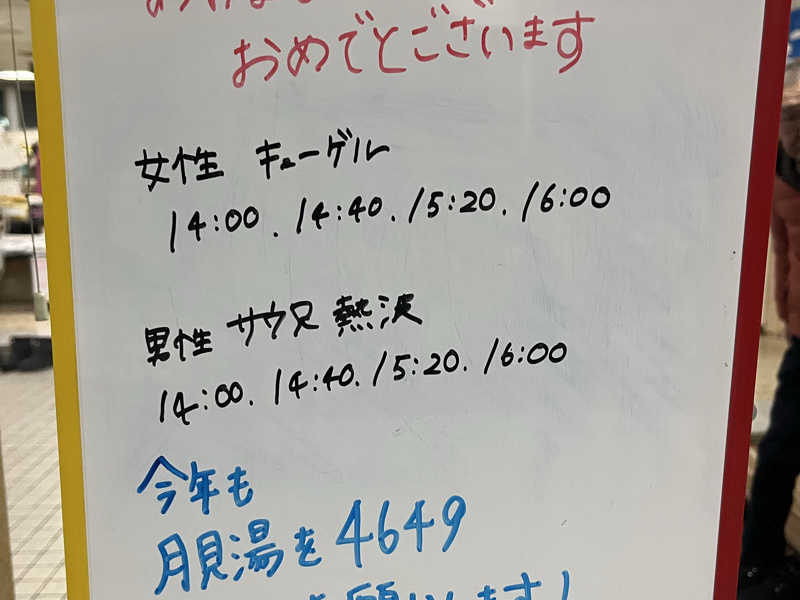 おめでとございます
女性 キューゲル
14:00. 14:40. 15:20. 16:00
男性 サウ兄 熱波
14:00. 14:40. 15:20. 16:00
今年も
月見湯を4649
お願いします!